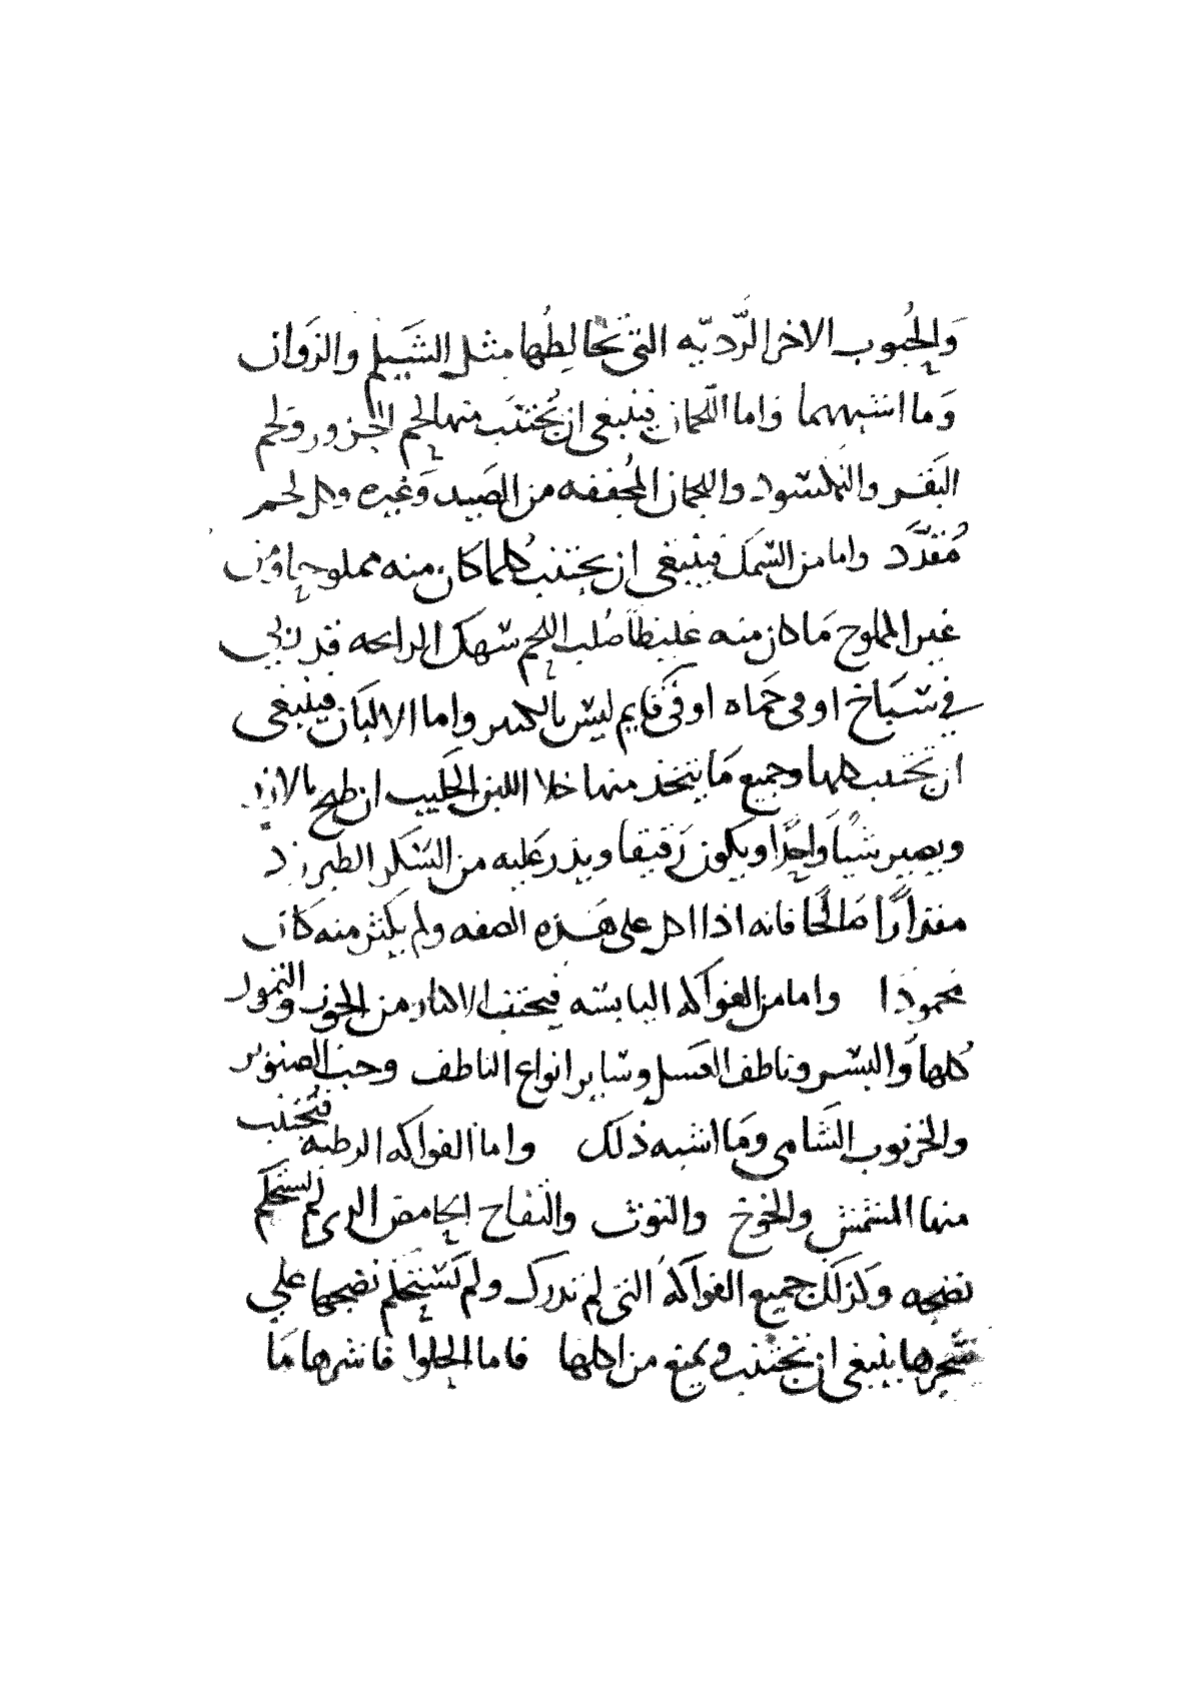 وَالحُبوب الاخر الرَّديّه التى تخالِطُها مثل الشَيلم والزَوان
وَما اشبههما وَاما اللحمان فينبغى ان يُجتنَب منها لحم الجزور ولحم
البَقَر والنمكسود واللحمان المُجففه من الصَيد وَغيره وكل لحم
مُقدَّد واما من السَّمك فينبغى ان يجتنب كلما كان منه مملوحا ومن
غير المملوح مَا كان منه غليظاً صُلب اللحم سَهك الرائحه قد ربي
في سَبَاخ او فى حَماه او فى قايم ليسَ بالكثير واما الالبَان فينبغى
ان تجتنب كلها وجميع مَا يتخذ منها خلا اللبن الحَليب ان طبخ بالارز
ويصير شياً واحِدًا ويكون رَقيقا ويذر عَليه من السّكر الطبرزد
مقدارًا صَالحًا فانه اذا اكل على هَذه الصفه ولم يكثر منه كان
محمودا واما من الفواكه اليابسَه فيجتنب الاكثار من الجوز والتمور
كلها وَالبسْر وناطف العَسل وسَاير انواع الناطف وحب الصنوبر
والخرنوب الشَامى ومَا اشبه ذلك واما الفواكه الرطبه فتجتنب
منها المشمش والخوخ والتوث والتفاح الحامض الذى لم يَستحكم
نضجه وكَذلك جميع الفواكه التى لم تدرك ولم يَستحكم نضجها على
شجرها ينبغى ان تجتنب ويمنع من اكلها فاما الحلوا فاشرها مَا